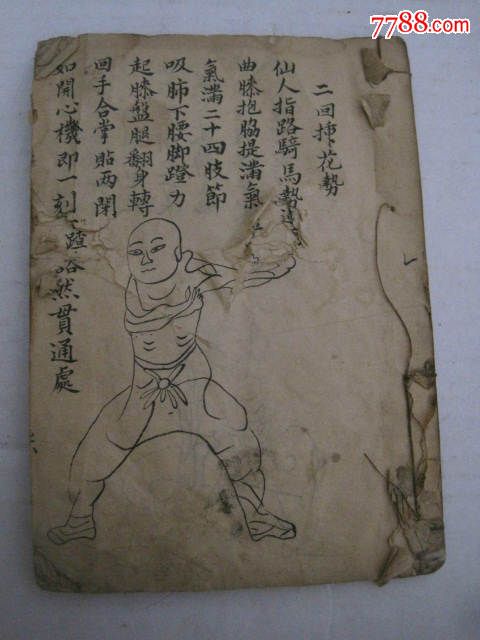 7788.com
二回挿花勢
仙人指路騎馬勢
曲膝抱脇提滿氣
氣滿二十四肢節
吸肺下腰脚蹬力
起膝盤腿翻身轉
回手合掌貼兩閉
如開心機即一刻踏
然貫通處